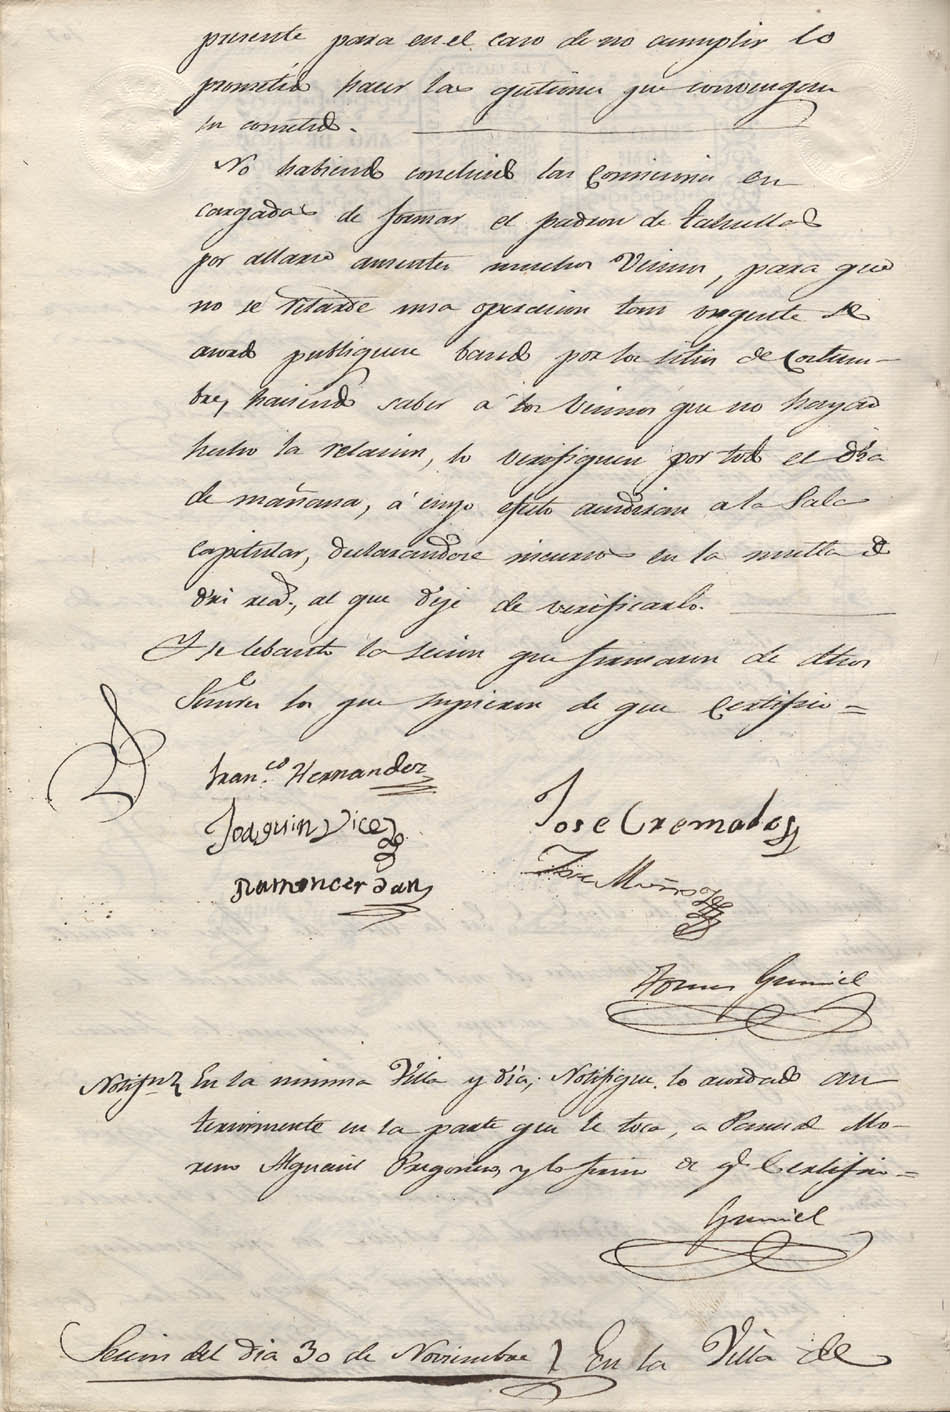 presente para en el caso de no cumplir lo
prometido hacer las gestiones que convengan
su cometido.
No habiendo concluido las Comisiones en
cargadas de formar el padron de tahullas
por allarse ausentes muchos Vecinos, para que
no se retarde una operacion tan urgente se
acordó publiquese bando por los sitios de Costum-
bre, haciendo saber á los Vecinos que no hayan
hecho la relacion, lo verifiquen por todo el dia
de mañana, á cuyo efecto acudiran a la Sala
capitular, declarandose incurso en la multa de
dies read.s, al que deje de verificarlo.
Y se lebantó la secion que firmaron de dhos
Señores los que supieron de que Certifico =
Fran.co Hernandez
Joaquin Vicedo
Jose Cremades
Jose Muños
Ramon cerdan
Tomas Gumiel
En la misma Villa y dia, Notifiqué lo acordado an
teriormente en la parte que le toca, a Pascual Mo-
reno Alguacil Pregonero, y lo firmo de q.e Certifico =
Gumiel
Secion del dia 30 de Noviembre } En la Villa de